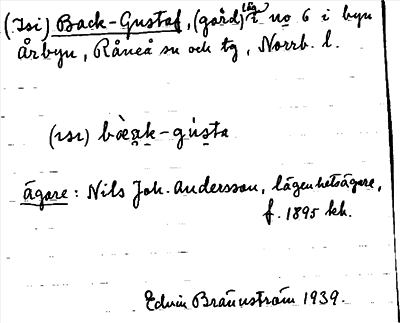 (Isi) Back-Gustaf, (gård) läg t no 6 i byn
Årbyn, Råneå sn och tg, Norrb. l.
(ısı) bæ̀ạk-gúṣta
ägare: Nils Joh. Andersson, lägenhetsägare,
f. 1895 kh.
Edvin Brännström 1939.